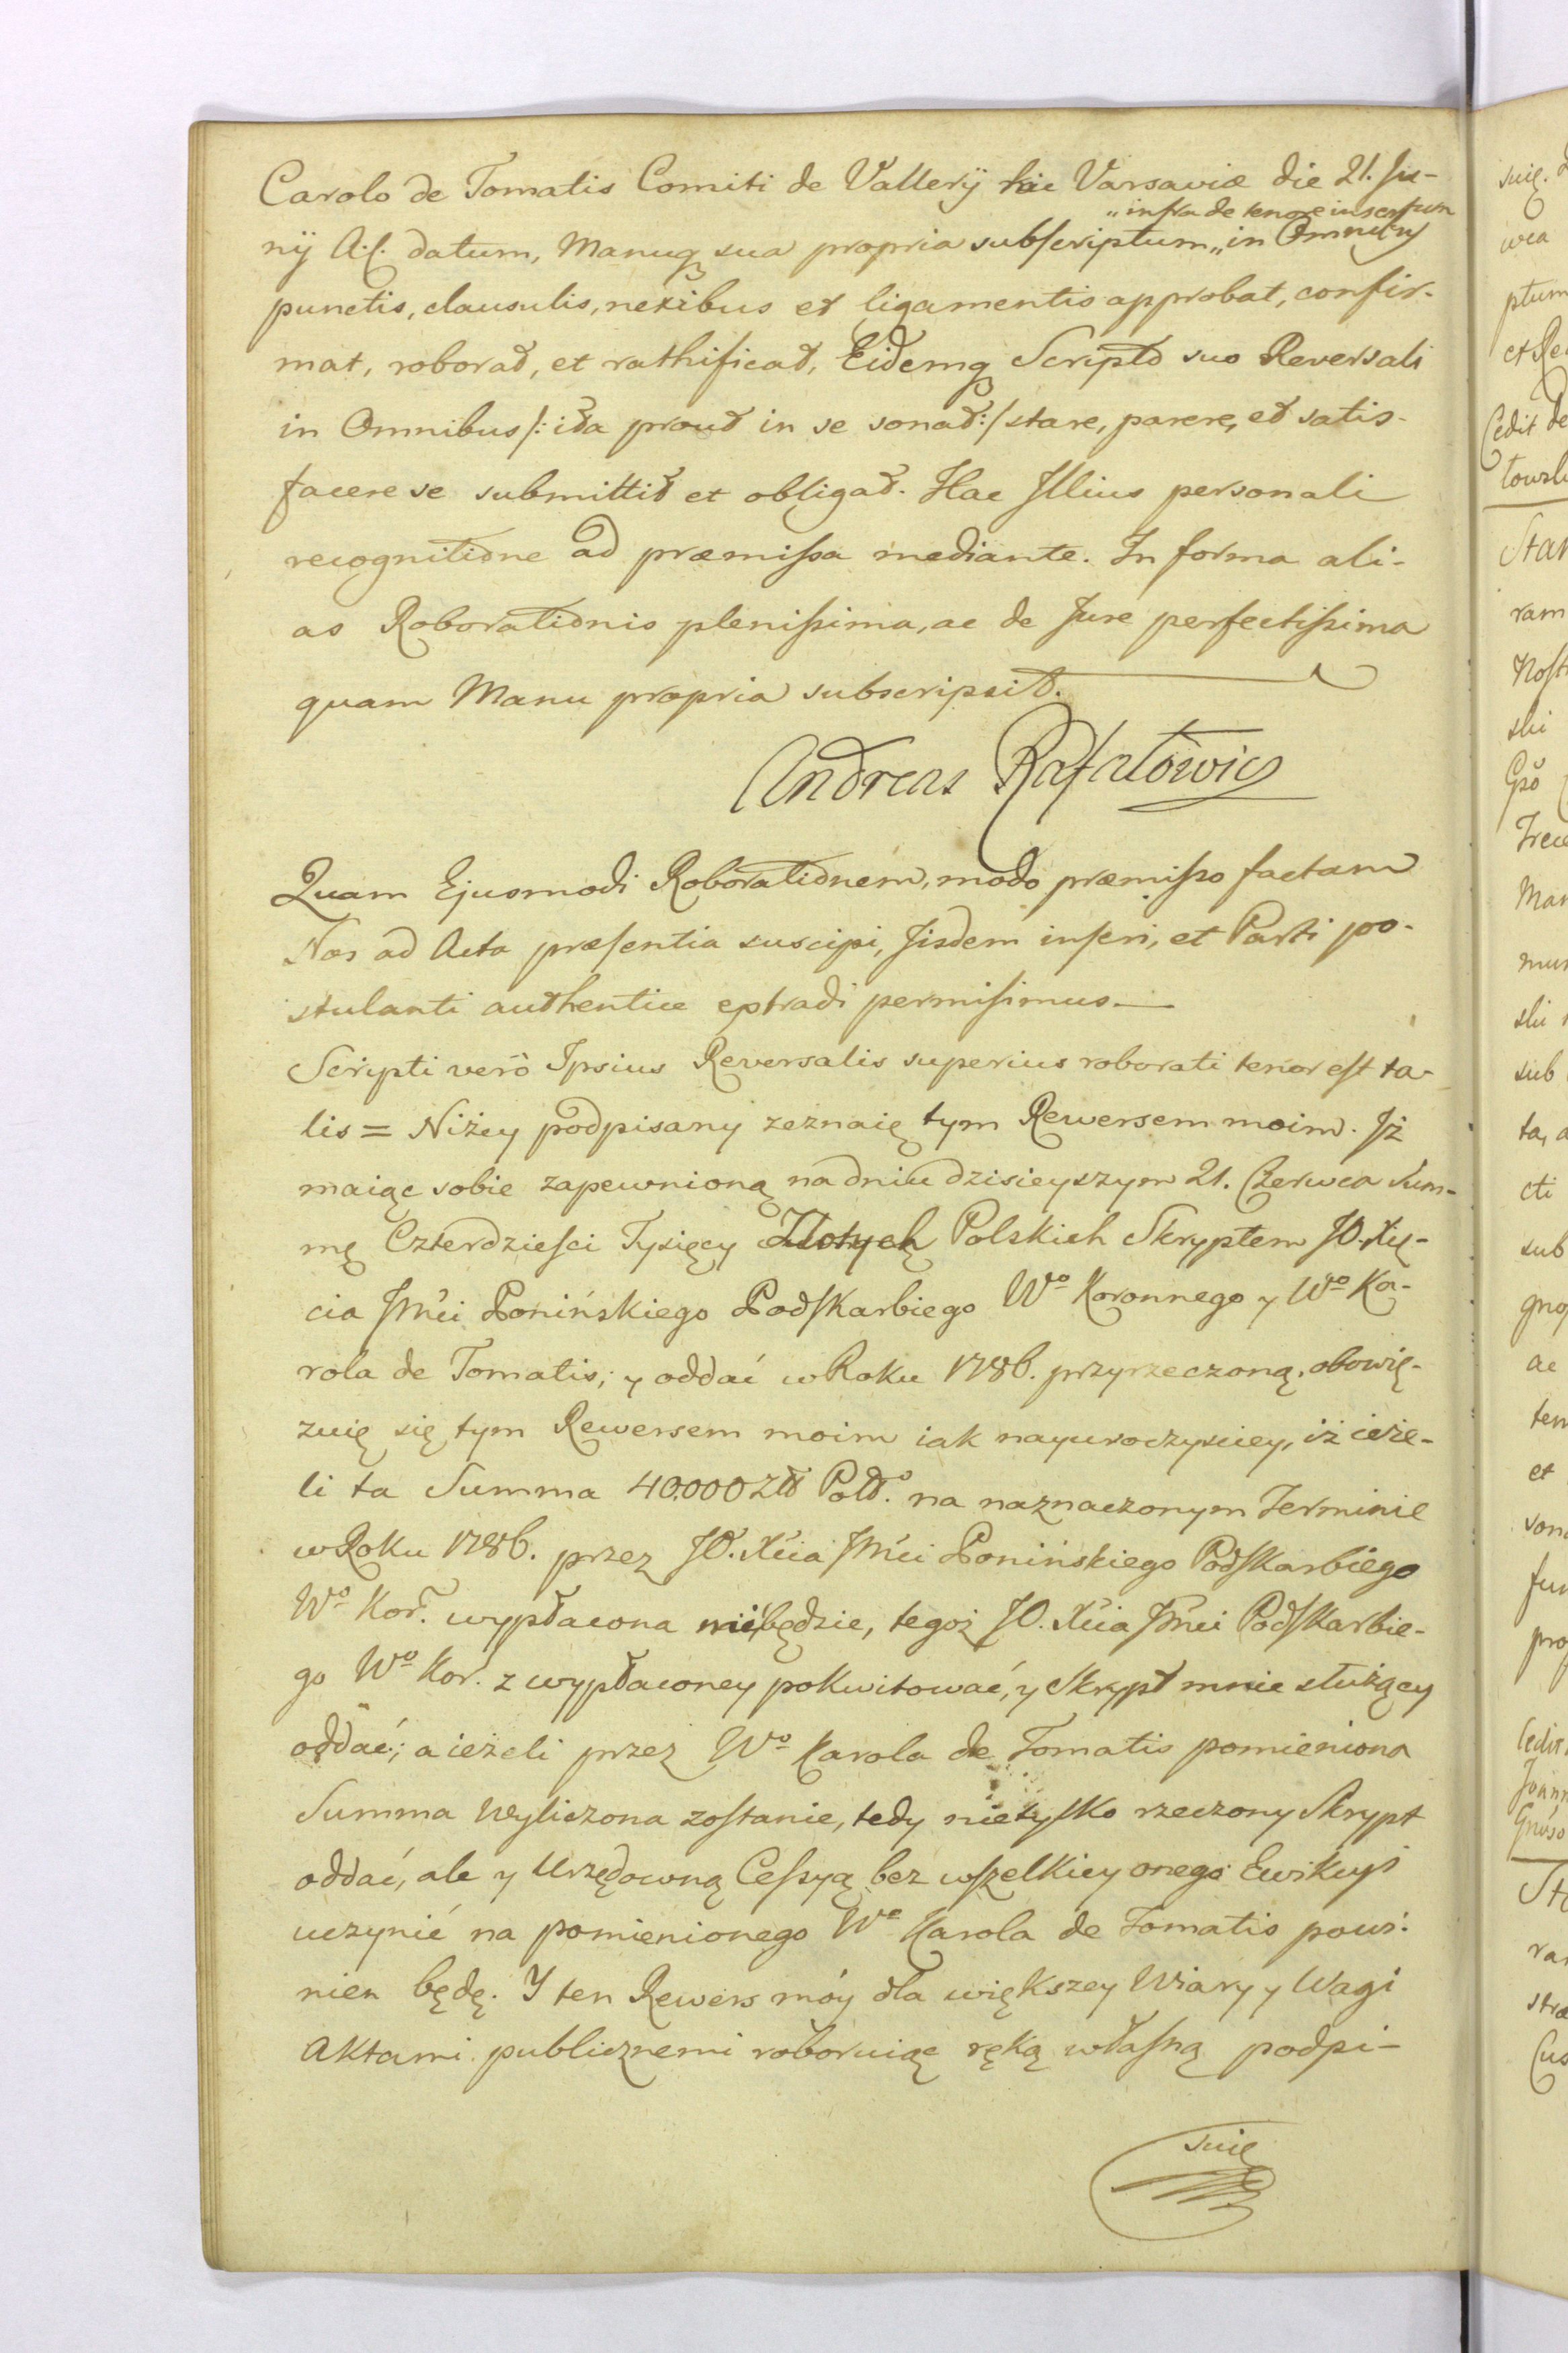 Carolo de Tomatis Comiti de Vallerÿ hic Varsaviæ die 21. Ju-
„infra de tenore insertum
nÿ A.C. datum, Manuq sua propria subscriptum „in Omnibus
punctis, clausulis, nexibus et ligamentis approbat, confir-
mat, roborat, et rathificat, Eidemq Scripto suo Reversali
in Omnibus /: ita prout in se sonat :/ stare, parere, et satis-
facere se submittit et obligat. Hac Illius personali
recognitione ad præmissa mediante. In forma ali-
as Roborationis plenissima, ac de Jure perfectissima
quam Manu propria subscripsit.
Andreas Rafałowicz
Quam Ejusmodi Roborationem, modo præmisso factam
Nos ad Acta præsentia suscipi, Iisdem inseri, et Parti po-
stulanti authentice extradi permisimus.—
Scripti verò Ipsius Reversalis superius roborati tenor est ta-
lis = Niżey podpisany zeznaię tym Rewersem moim. Iż
maiąc sobie zapewnioną na dniu dzisieyszym 21. Czerwca Sum-
mę Czterdziesci Tysięcy Złotych Polskich Skryptem JO. Xię-
cia Jmći Ponińskiego Podskarbiego Wo Koronnego y Wo Ka-
rola de Tomatis; y oddać w Roku 1786. przyrzeczoną, obowię-
zuię się tym Rewersem moim iak nayuroczyściey, iż ieże-
li ta Summa 40,000 Złł Pol. na naznaczonym Terminie
w Roku 1786. przez JO. Xcia Jmći Ponińskiego Podskarbiego
Wo Kor. wypłacona mi będzie, tegoż JO. Xcia Jmći Podskarbie-
go Wo Kor. z wypłaconey pokwitować, y Skrypt mnie służący
oddać; a ieżeli przez Wo Karola de Tomatis pomieniona
Summa wyliczona zostanie, tedy nietylko rzeczony Skrypt
oddać, ale y Urzędowną Cessyą bez wszelkiey onego Ewikcyi
uczynić na pomienionego Wo Karola de Tomatis powi-
nien będę. Y ten Rewers móy dla większey Wiary y Wagi
Aktami publicznemi roboruiąc ręką własną podpi-
suię